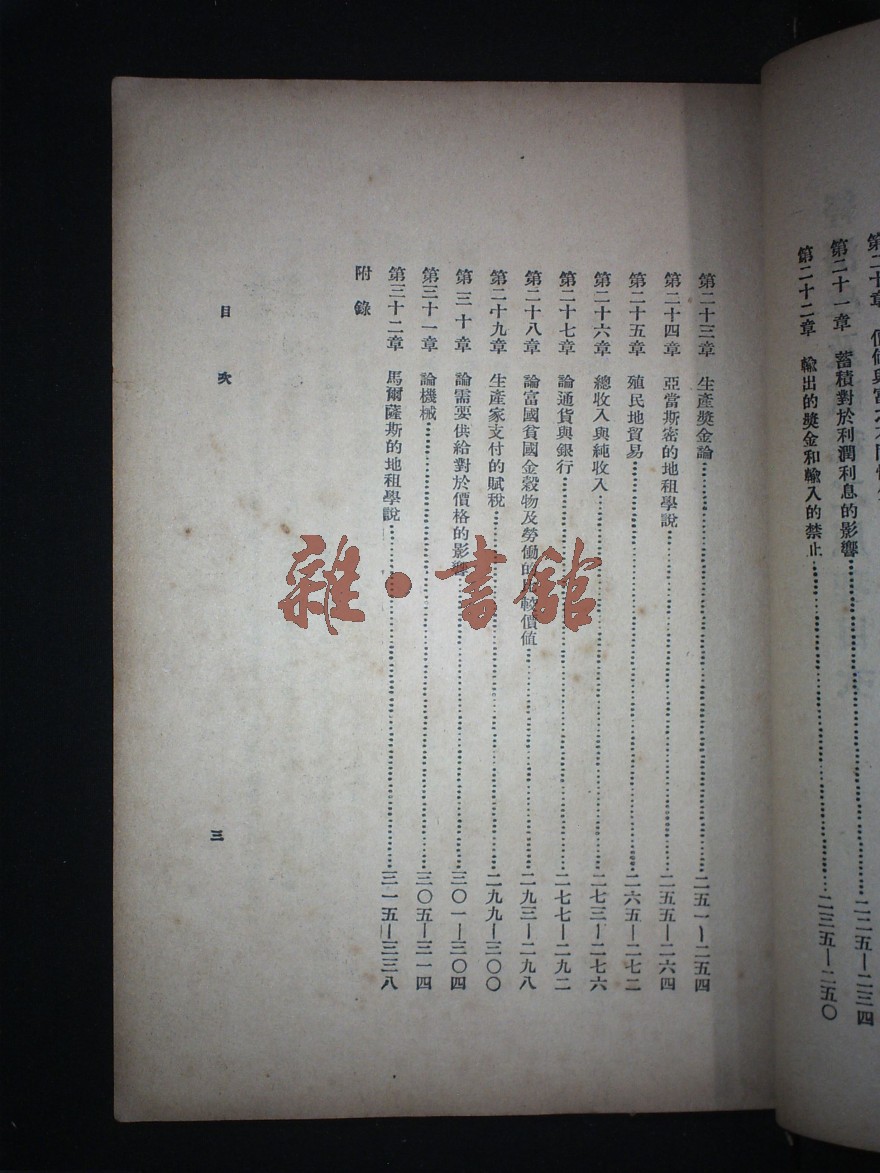 第二十章 價値與富
第二十一章 蓄積對於利潤利息的影響……二二五—二三四
第二十二章 輸出的獎金和輸入的禁止……二三五—二五〇
第二十三章 生產獎金論……二五一—二五四
第二十四章 亞當斯密的地租學說……二五五—二六四
第二十五章 殖民地貿易……二六五—二七二
第二十六章 總收入與純收入……二七三—二七六
第二十七章 論通貨與銀行……二七七—二九二
第二十八章 論富國貧國金穀物及勞働的比較價値……二九三—二九八
第二十九章 生產家支付的賦稅……二九九—三〇〇
第三十章 論需要供給對於價格的影響……三〇一—三〇四
第三十一章 論機械……三〇五—三一四
第三十二章 馬爾薩斯的地租學說……三一五—三三八
附錄
目次
三
雜·書館